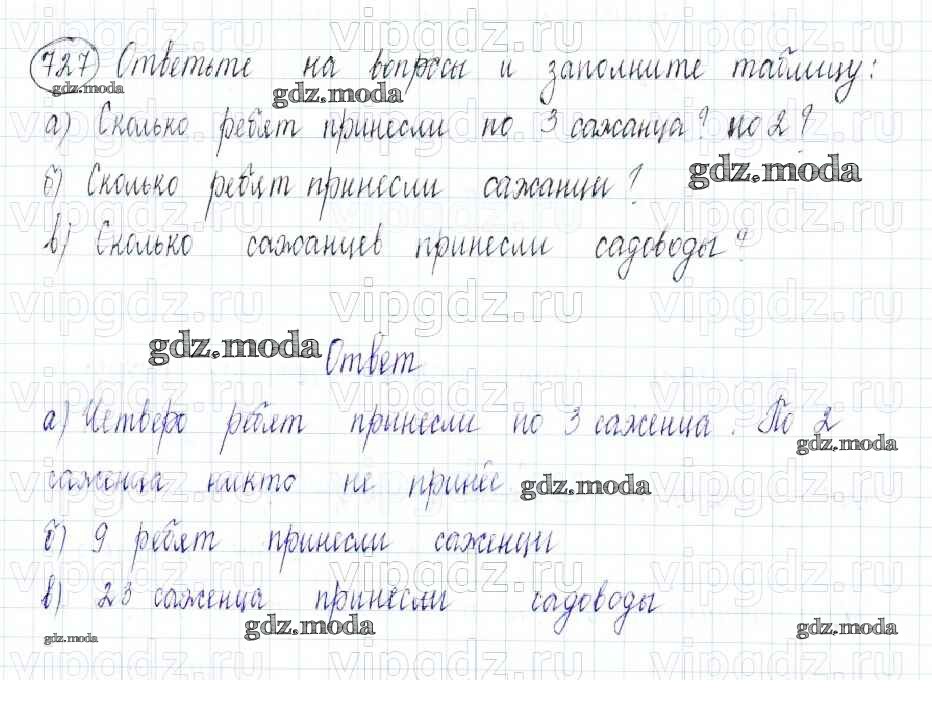 727 Ответьте на вопросы и заполните таблицу:
gdz.moda gdz.moda
а) Сколько ребят принесли по 3 сажанца? по 2?
б) Сколько ребят принесли сажанци?
gdz.moda
в) Сколько сажанцев принесли садоводы?
vipgdz.ru vipgdz.ru vipgdz.ru
gdz.moda
Ответ
а) Четверо ребят принесли по 3 саженца. По 2
gdz.moda
саженца никто не принёс
gdz.moda
б) 9 ребят принесли саженци
в) 23 саженца принесли садоводы
gdz.moda gdz.moda gdz.moda
vipgdz.ru vipgdz.ru vipgdz.ru